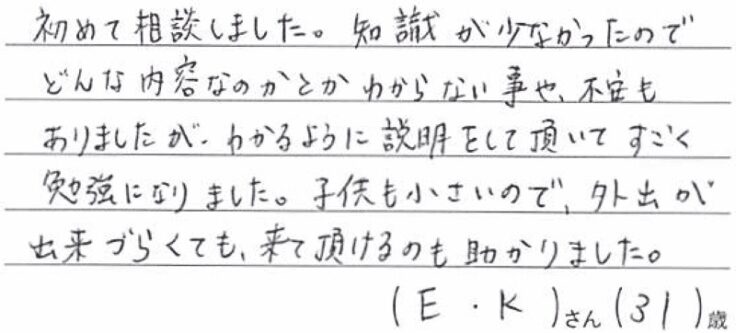 初めて相談しました。知識が少なかったので
どんな内容なのかとかわからない事や、不安も
ありましたが、わかるように説明をして頂いてすごく
勉強になりました。子供も小さいので、外出が
出来づらくても、来て頂けるのも助かりました。
(E・K)さん(31)歳